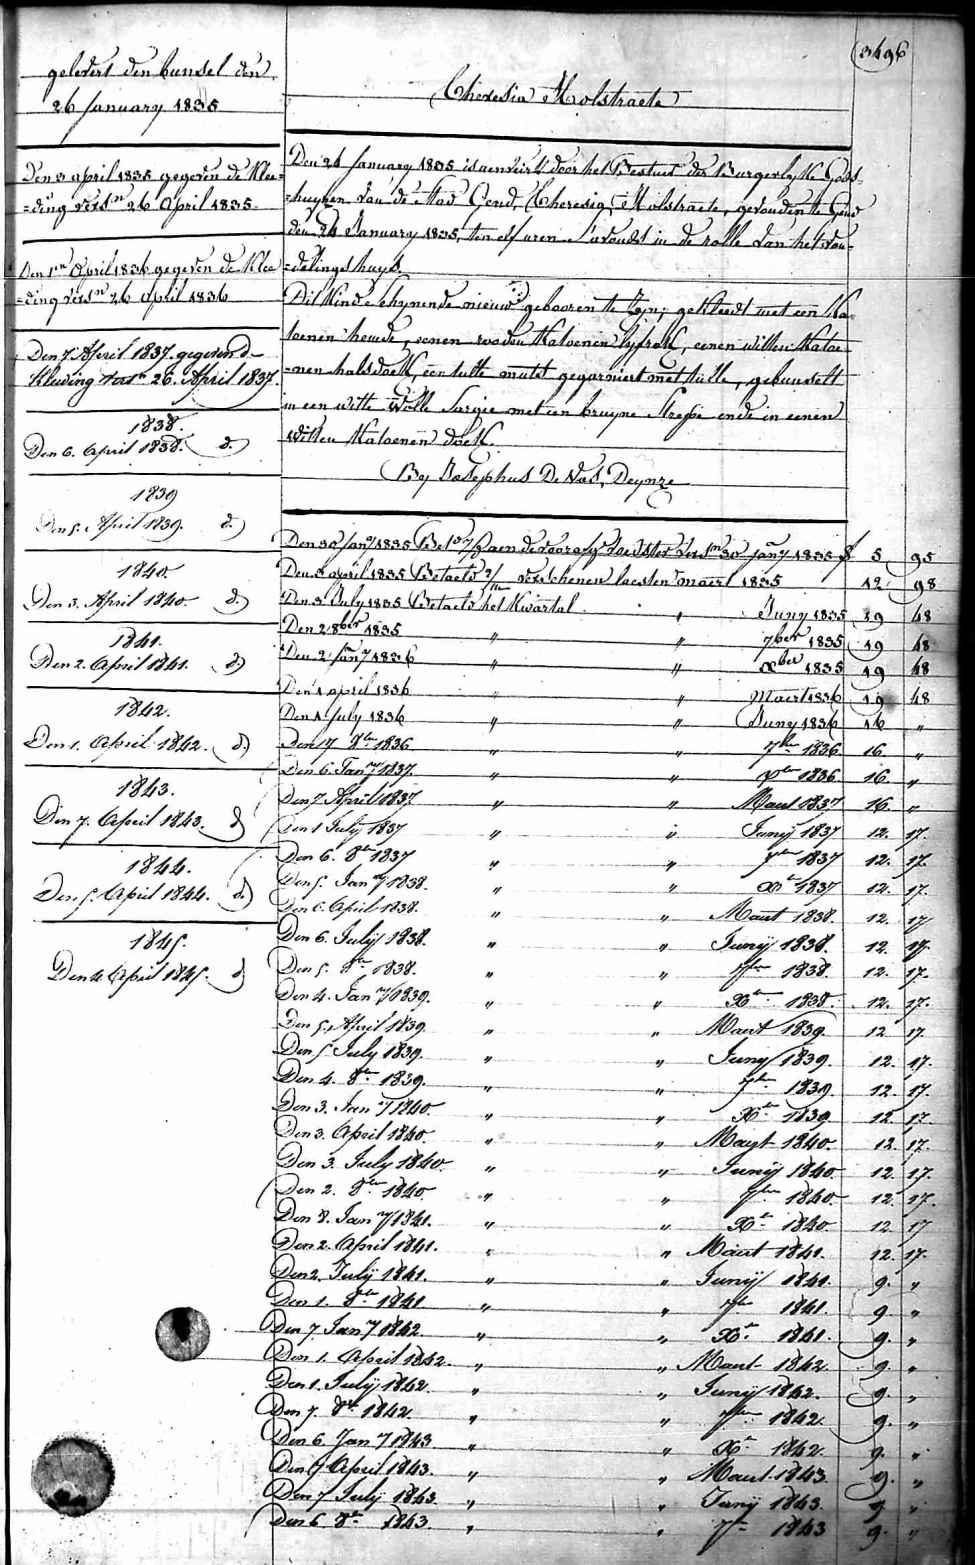 3496
gelevert den bunsel den
26 January 1835
Theresia Molstraete
Den 3 april 1835 gegeven de Klee=
=ding versn 26 April 1835.
Den 1en April 1836 gegeven de Klee
=ding versn 26 April 1836
Den 7 April 1837 gegeven d
Kleeding versn 26. April 1837.
1838.
Den 6. April 1838. d.
1839
Den 5. April 1839. d.
1840.
Den 3. April 1840. d.
1841.
Den 2. April 1841. d
1842.
Den 1. April 1842. d.
1843.
Den 7. April 1843. d
1844.
Den 5. April 1844. d.
1845.
Den 4. April 1845. d
Den 24 January 1835 is aenveirt door het Bestuer der Burgerlyke Gods
=huyzen van de Stad Gend, Theresia Molstraete, gevonden te Gend
den 24 January 1835, ten elf uren s'avonds in de rolle van het von=
=delingshuys.
Dit Kind schynende nieuw gebooren te zyn; gekleedt met een Ka=
toenen hemde, eenen rooden Katoenen lyfrok, eenen witten Katoe=
=nen halsdoek, een tulle muts gegarniert met tulle, gebunselt
in een witte Wolle Sargie met een bruyne Streepe ende in eenen
witten Katoenen doek.
By Josephus De Vos, Deynze
Den 30 Jany 1835 aen de voorafg voedster versn 30 Jany 1835 f 5 95
Den 3 april 1835 Betaelt verschenen laesten maert 1835 12 98
Den 3 July 1835 Betaelt het Kwartal " Juny 1835 19 48
Den 2 8ber 1835 " " 7ber 1835 19 48
Den 2 Jany 1836 " " Xber 1835 19 48
Den 1 april 1836 " " Maert 1836 19 48
Den 1 July 1836 " " Juny 1836 16 "
Den 7 8br 1836 " " 7ber 1836 16. "
Den 6. Jany 1837. " " Xber 1836 16. "
Den 7 April 1837. " " Maert 1837 16. "
Den 1 July 1837 " " Junij 1837 12. 17.
Den 6. 8br 1837 " " 7br 1837 12. 17.
Den 5. Jany 1838. " " Xr 1837 12. 17.
Den 6. April 1838. " " Maert 1838. 12. 17
Den 6. July 1838. " " Junij 1838. 12. 17.
Den 5. 8br 1838. " " 7ber 1838. 12. 17.
Den 4. Jany 1839. " " Xber 1838. 12. 17.
Den 5. April 1839. " " Maert 1839. 12 17.
Den 5 July 1839. " " Juny 1839. 12. 17.
Den 4. 8br 1839. " " 7br 1839. 12. 17.
Den 3. Jany 1840. " " Xbr 1839. 12 17.
Den 3. April 1840. " " Maert 1840. 12. 17.
Den 3. July 1840. " " Junij 1840. 12. 17.
Den 2. 8br 1840. " " 7ber 1840. 12. 17.
Den 8. Jany 1841. " " Xbr 1840. 12 17
Den 2. April 1841. " " Maert 1841. 12. 17.
Den 2. July 1841. " " Junij 1841. 9. "
Den 1. 8br 1841 " " 7ber 1841. 9 "
Den 7. Jany 1842. " " Xbr 1841. 9. "
Den 1. April 1842. " " Maert 1842 9. "
Den 1. July 1842. " " Junij 1842. 9. "
Den 7. 8br 1842. " " 7ber 1842. 9. "
Den 6 Jany 1843 " " Xr 1842. 9. "
Den 7 April 1843. " " Maert 1843. 9. "
Den 7 July 1843. " " Junij 1843. 9 "
Den 6 8br 1843. " " 7br 1843 9. "